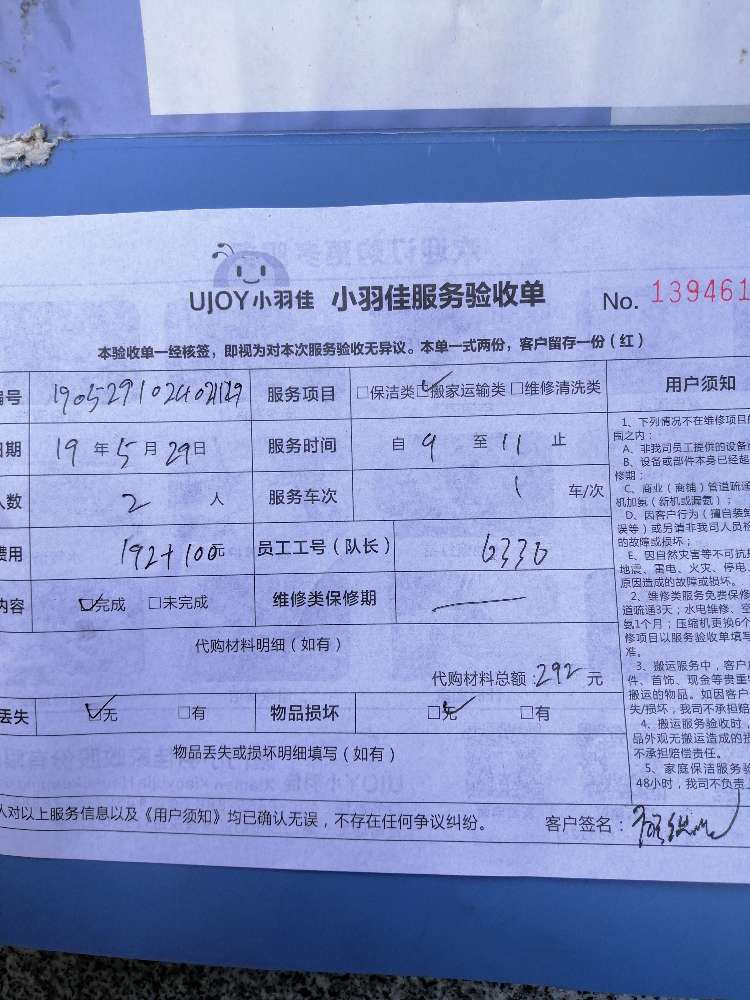 UJOY小羽佳 小羽佳服务验收单 No. 139461
本验收单一经核签，即视为对本次服务验收无异议。本单一式两份，客户留存一份（红）
编号 服务项目 □保洁类 ☑搬家运输类 □维修清洗类 用户须知
日期 19 年 5 月 29 日 服务时间 自 9 至 11 止
人数 2 人 服务车次 1 车/次
费用 192+100元 员工工号（队长） 6330
内容 ☑完成 □未完成 维修类保修期 —
代购材料明细（如有）
代购材料总额：292 元
丢失 ☑无 □有 物品损坏 ☑无 □有
物品丢失或损坏明细填写（如有）
人对以上服务信息以及《用户须知》均已确认无误，不存在任何争议纠纷。 客户签名：
1、下列情况不在维修项目的
围之内：
A、非我司员工提供的设备
B、设备或部件本身已经超
修期；
C、商业（商铺）管道疏通
机加氨（新机或漏氨）；
D、因客户行为（擅自装
误等）或另请非我司人员
的故障或损坏；
E、因自然灾害等不可抗
地震、雷电、火灾、停电、
原因造成的故障或损坏。
2、维修类服务免费保修
道疏通3天；水电维修、空
氨1个月；压缩机更换6个
修项目以服务验收单填写
准。
3、搬运服务中，客户
件、首饰、现金等贵重
搬运的物品。如因客户
失/损坏，我司不承担赔
4、搬运服务验收时，
品外观无搬运造成的损
不承担赔偿责任。
5、家庭保洁服务验
48小时，我司不负责